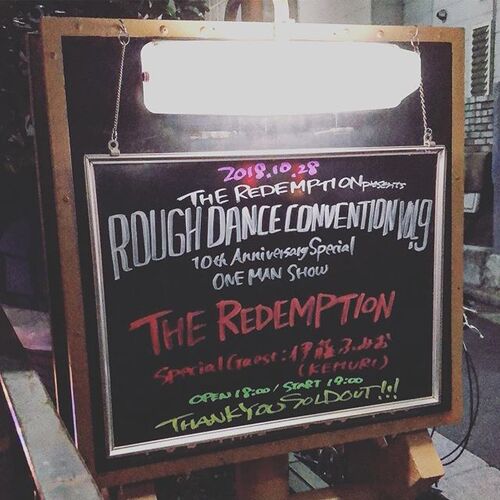 2018.10.28
THE REDEMPTION presents
ROUGH DANCE CONVENTION VOL.9
10th Anniversary Special
ONE MAN SHOW
THE REDEMPTION
Special Guest : 伊藤ふみお
(KEMURI)
OPEN 18:00 / START 19:00
THANK YOU SOLD OUT!!!